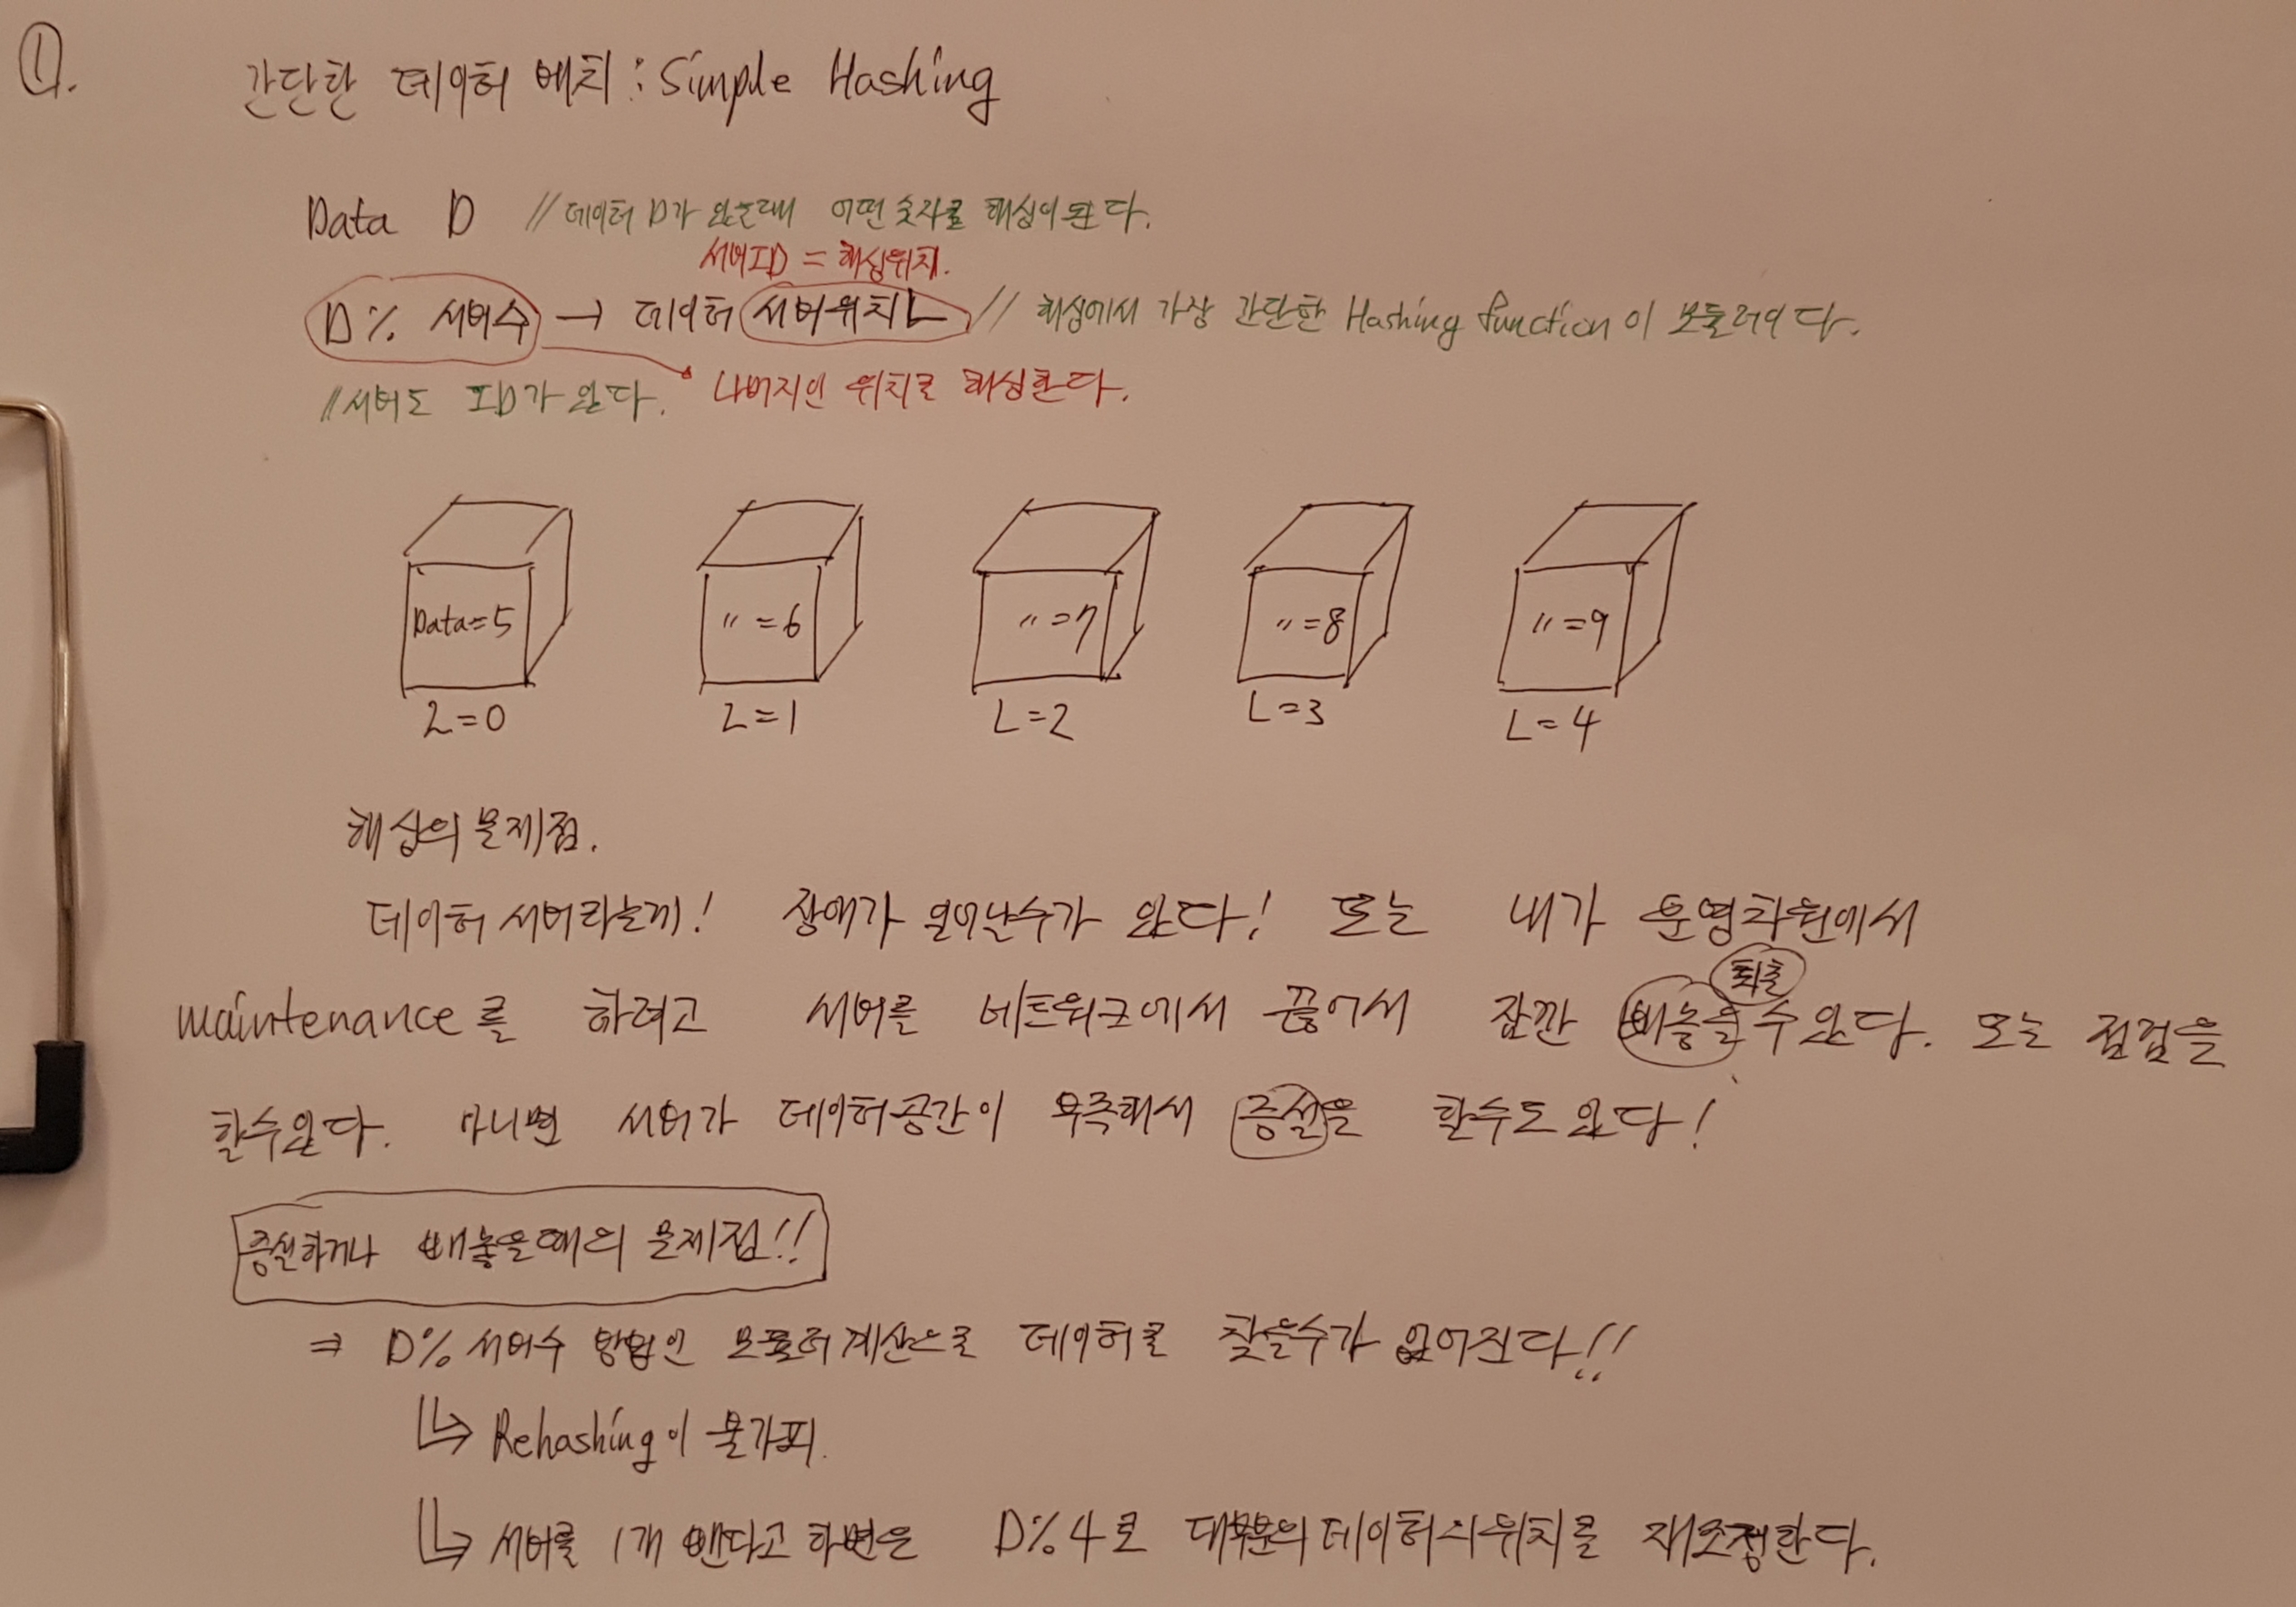 ①.
간단한 데이터 배치 : Simple Hashing
Data D // 데이터 D가 있는데 어떤 숫자로 해싱이 된다.
서버ID = 해싱위치.
D% 서버수 → 데이터 서버위치 L // 해싱에서 가장 간단한 Hashing function이 모듈러이다.
// 서버도 ID가 있다. 나머지인 위치로 해싱한다.
Data=5 〃=6 〃=7 〃=8 〃=9
L=0 L=1 L=2 L=3 L=4
해싱의 문제점.
데이터 서버라는게! 장애가 일어날수가 있다! 또는 내가 운영차원에서
퇴출
maintenance를 하려고 서버를 네트워크에서 끊어서 잠깐 빼놓을수있다. 또는 점검을
할수있다. 아니면 서버가 데이터공간이 부족해서 증설을 할수도 있다!
증설하거나 빼놓을때의 문제점!!
⇒ D% 서버수 방법인 모듈러계산으로 데이터를 찾을수가 없어진다!!
↳ Rehashing이 불가피.
↳ 서버를 1개 뺀다고 하면은 D%4로 대부분의 데이터의 위치를 재조정한다.